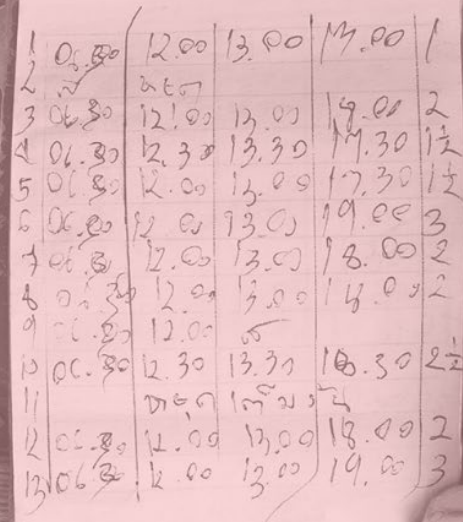 1 06.30 12.00 13.00 17.00 1
2 หยุด
3 06.30 12.00 13.00 18.00 2
4 06.30 12.30 13.30 17.30 1½
5 06.30 12.00 13.00 17.30 1½
6 06.30 12.00 13.00 19.00 3
7 06.30 12.00 13.00 18.00 2
8 06.30 12.00 13.00 18.00 2
9 06.30 12.00
10 06.30 12.30 13.30 18.30 2½
11 หยุด
12 06.30 12.00 13.00 18.00 2
13 06.30 12.00 13.00 19.00 3